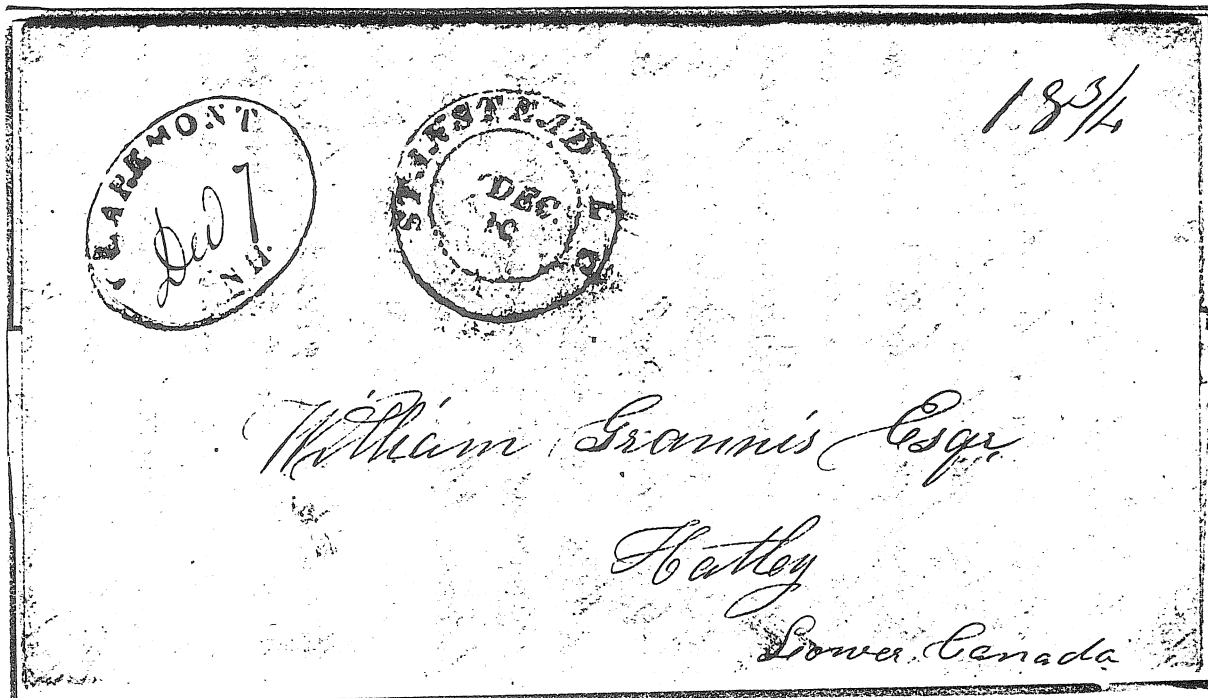 CLAREMONT
Dec 7
N.H.
STANSTEAD L C
DEC.
18 3/4
William Grannis Esqr.
Hatley
Lower Canada